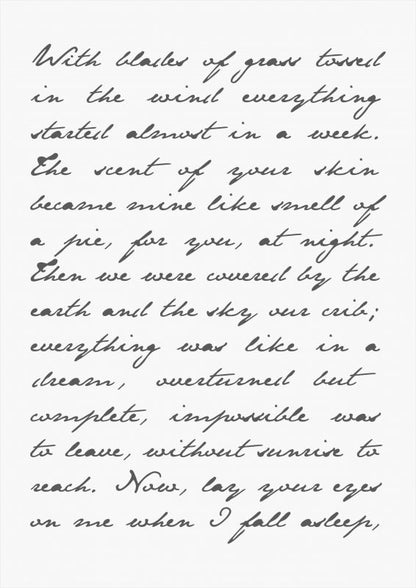 With blades of grass tossed
in the wind everything
started almost in a week.
The scent of your skin
became mine like smell of
a pie, for you, at night.
Then we were covered by the
earth and the sky our crib;
everything was like in a
dream, overturned but
complete, impossible was
to leave, without sunrise to
reach. Now, lay your eyes
on me when I fall asleep,